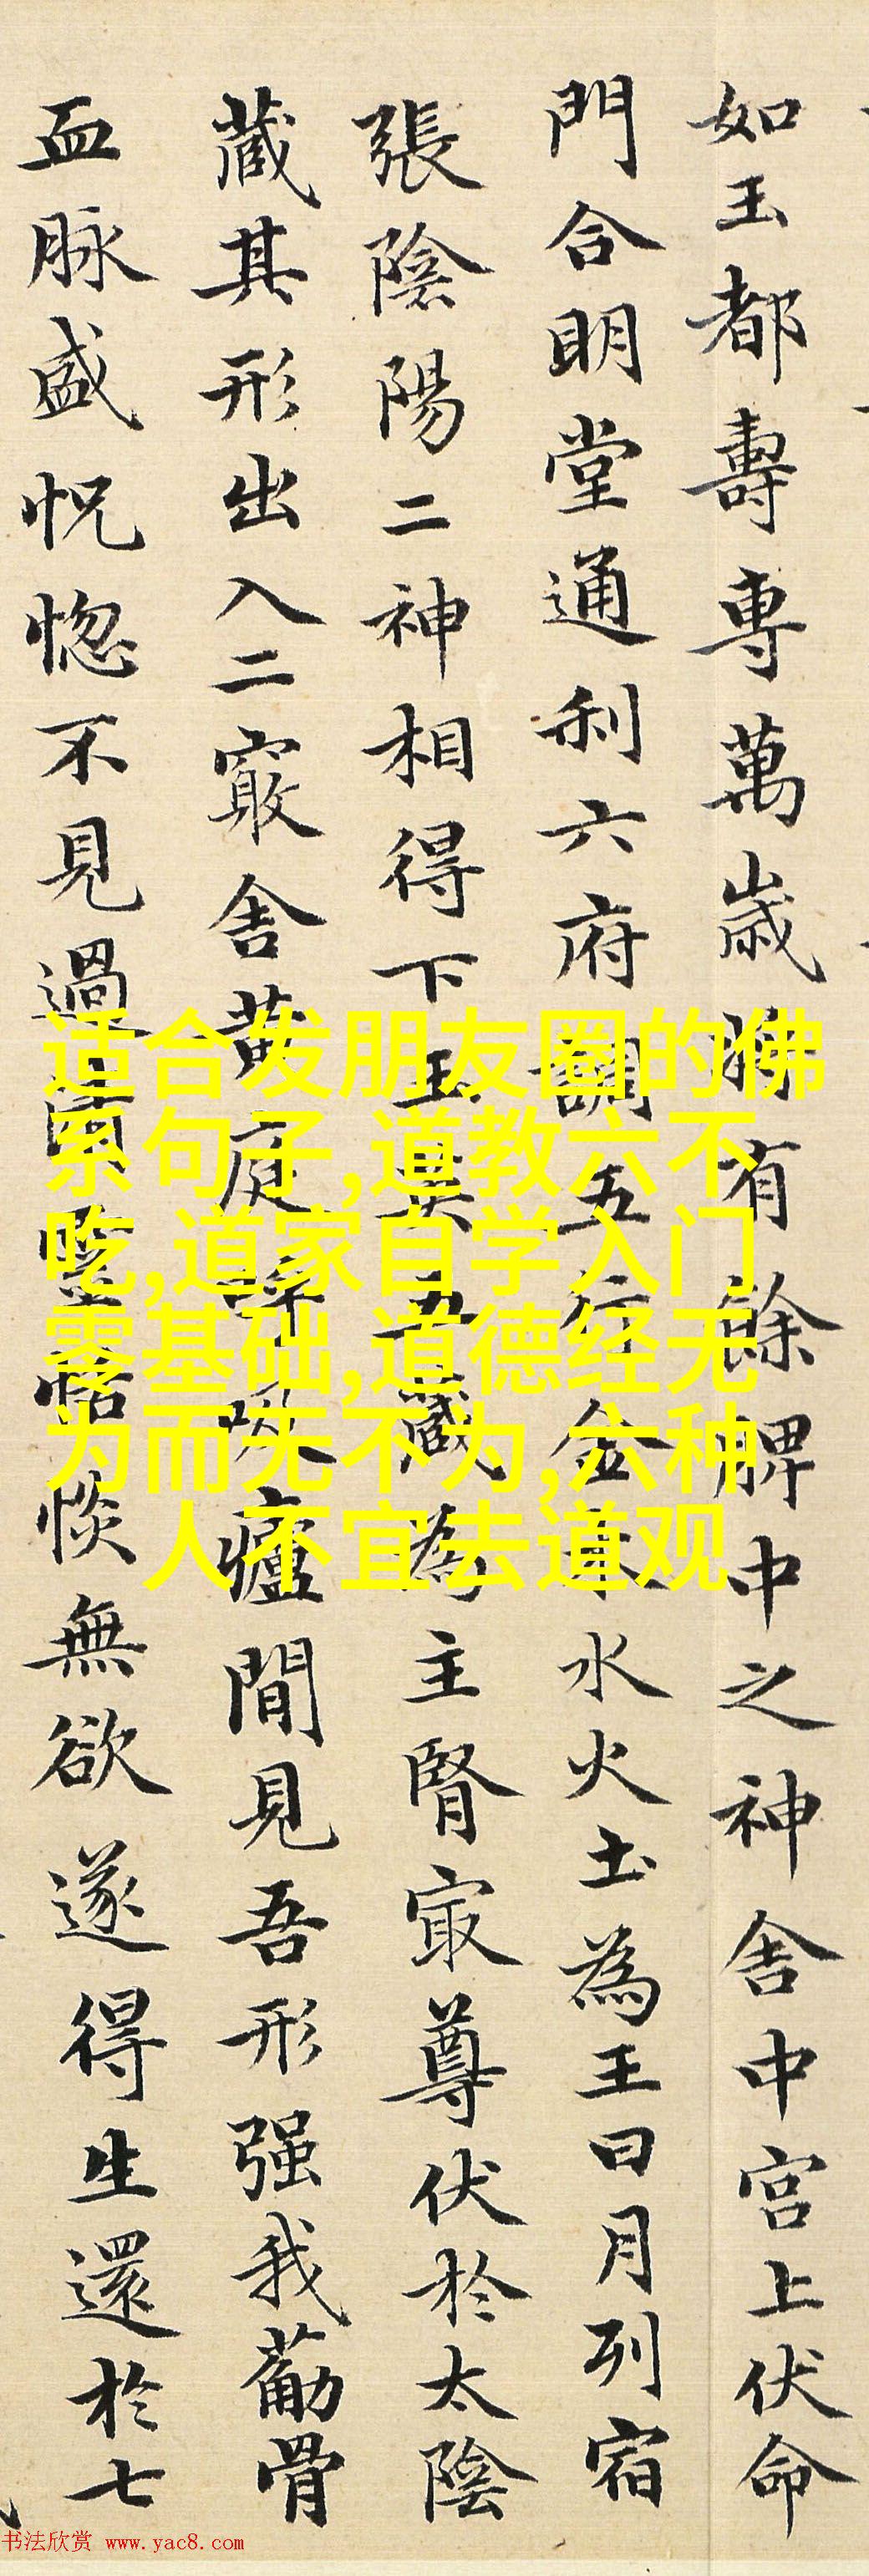 如玉都壽專萬歲將有餘脾中之神舍中宮上伏命
門合明堂通利六府調五行金木水火土為王日月列宿
張陰陽二神相得下玉英五藏為主腎冣尊伏於太陰
藏其形出入二竅舍黃庭呼吸廬間見吾形强我筋骨
血脉盛怳惚不見過清靈恬惔無欲遂得生還於七
适合发朋友圈的佛
系句子,道教六不
吃,道家自学入门
零基础,道德经无
为而无不为,六种
人不宜去道观
书法欣赏 www.yac8.com